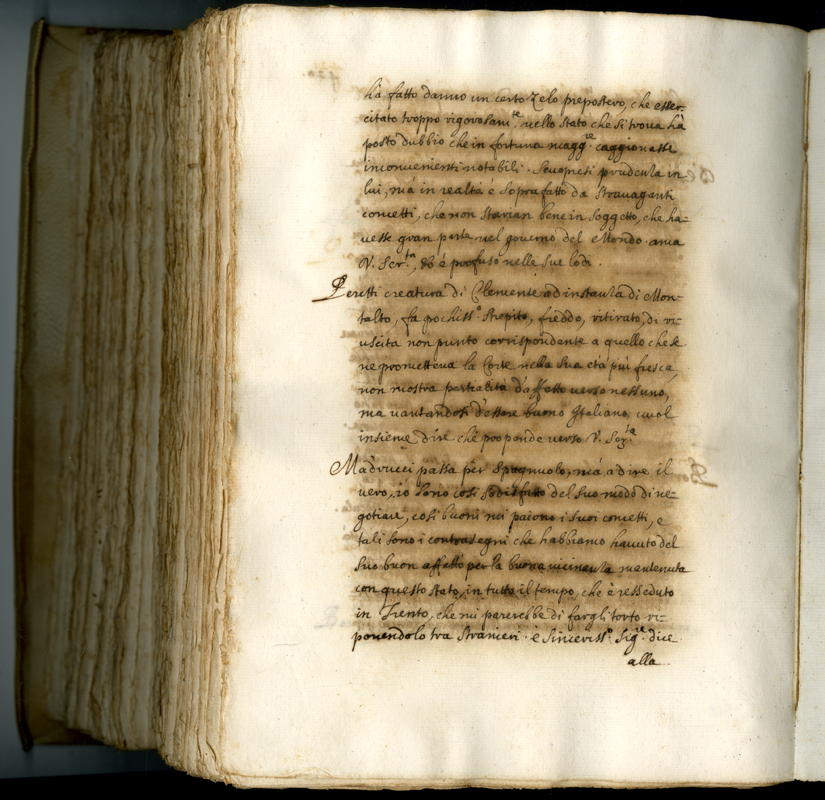 hà fatto danno un certo Zelo prepostero, che esser-
citato troppo rigorosam.te nello Stato che si troua hà
posto dubbio che in fortuna magg.re caggionasse
inconuenienti notabili. Scuopresi prudenza in
lui, mà in realtà è soprafatto da Strauaganti
concetti, che non starian bene in soggetto, che ha-
uesse gran parte nel gouerno del Mondo. ama
V. Ser.tà, et è profuso nelle sue lodi.
Peretti creatura di Clemente ad instanza di Mon-
talto, fa pochiss.o strepito, freddo, ritirato, di ri-
uscita non punto corrispondente a quello che se
ne prometteua la Corte nella sua età più fresca,
non mostra partialità d'affetto verso nessuno,
ma uantandosi d'essere buono Italiano, uuol
insieme dire che propende verso V. Ser.tà
Madrucci passa per Spagnuolo, mà a dire il
uero, io sono così sodisfatto del suo modo di ne-
gotiare, così buoni mi paiono i suoi concetti, e
tali sono i contrasegni che habbiamo hauuto del
suo buon affetto per la buona uicinanza mantenuta
con questo stato, in tutto il tempo, che è resseduto
in Trento, che mi parerebbe di fargli torto ri-
ponendolo tra stranieri. è Sinceriss.o Sig.re dice
alla